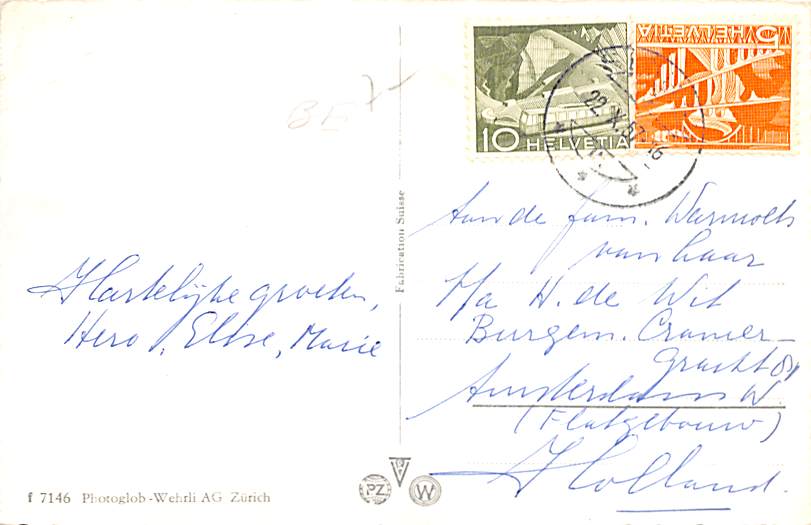 BE
Hartelijke groeten,
Hero, Elbse, Marie
f 7146 Photoglob-Wehrli AG Zürich
Fabrication Suisse
PZ
W
10 HELVETIA
5 HELVETIA
22.X.57.16
Aan de fam. Warmolts
van haar
p/a H. de Wit
Burgem. Cramer-
gracht
Amsterdam W.
(Flatgebouw)
Holland.